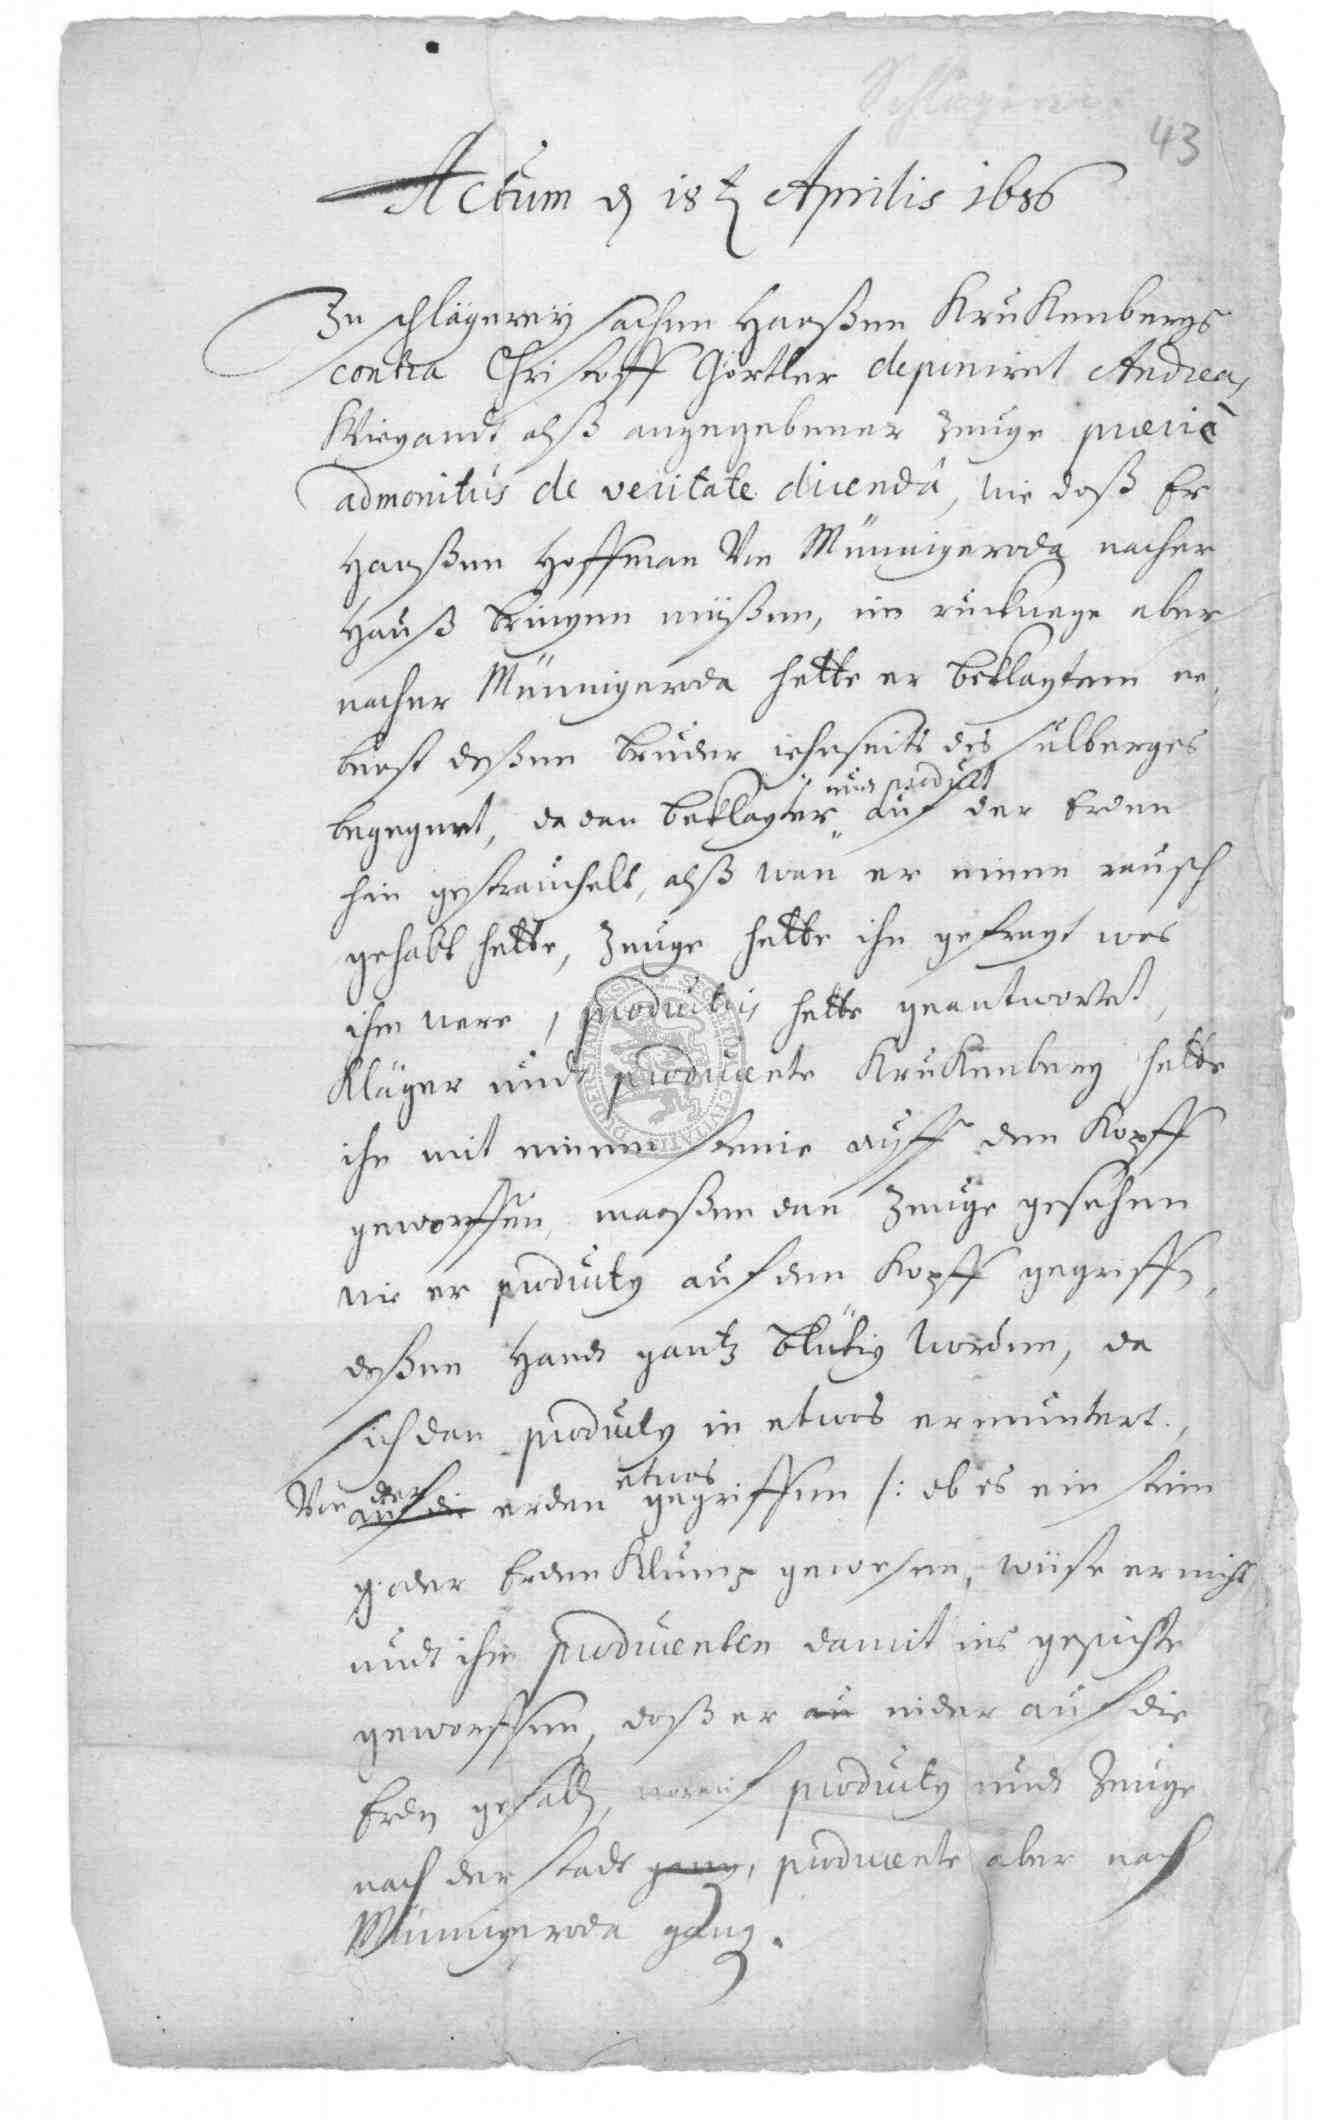 43
Actum d 18t Aprilis 1686
In schlägereÿ sachen Hanßen Krukenbergs
contra Christoff Görtler deponiret Andreas
Wiegandt alß angegebener Zeuge præviè
admonitus de veritate dicendâ, wie daß Er
Hanßen Hoffman von Münnigeroda nacher
Hauß bringen müßen, im ruckwege aber
nacher Münnigeroda hette er beklagtem ne-
benst deßen bruder jehnseits des sulberges
begegnet, da dan beklagter undt product auf der Erden
hin gestrauchelt, alß wan er einen rausch
gehabt hette, Zeuge hette ihn gefragt was
ihm were, productus hette geantwortet,
Kläger undt producente Krukenberg hette
ihn mit einem steine auff den Kopff
geworffen, maaßen dan Zeuge gesehen
wie er productus auf den Kopff gegriffen,
deßen Handt gantz blutig worden, da
sich dan productus in etwas ermuntert,
Von der auf die erden etwas gegriffen /: ob es ein stein
oder Erden Klump gewesen, wüste er nicht
undt ihm producenten damit ins gesichte
geworffen, daß er an nider auf die
Erden gefallen, worauf productus undt Zeuge
nach der stadt gang, producente aber nach
Münnigeroda gang.